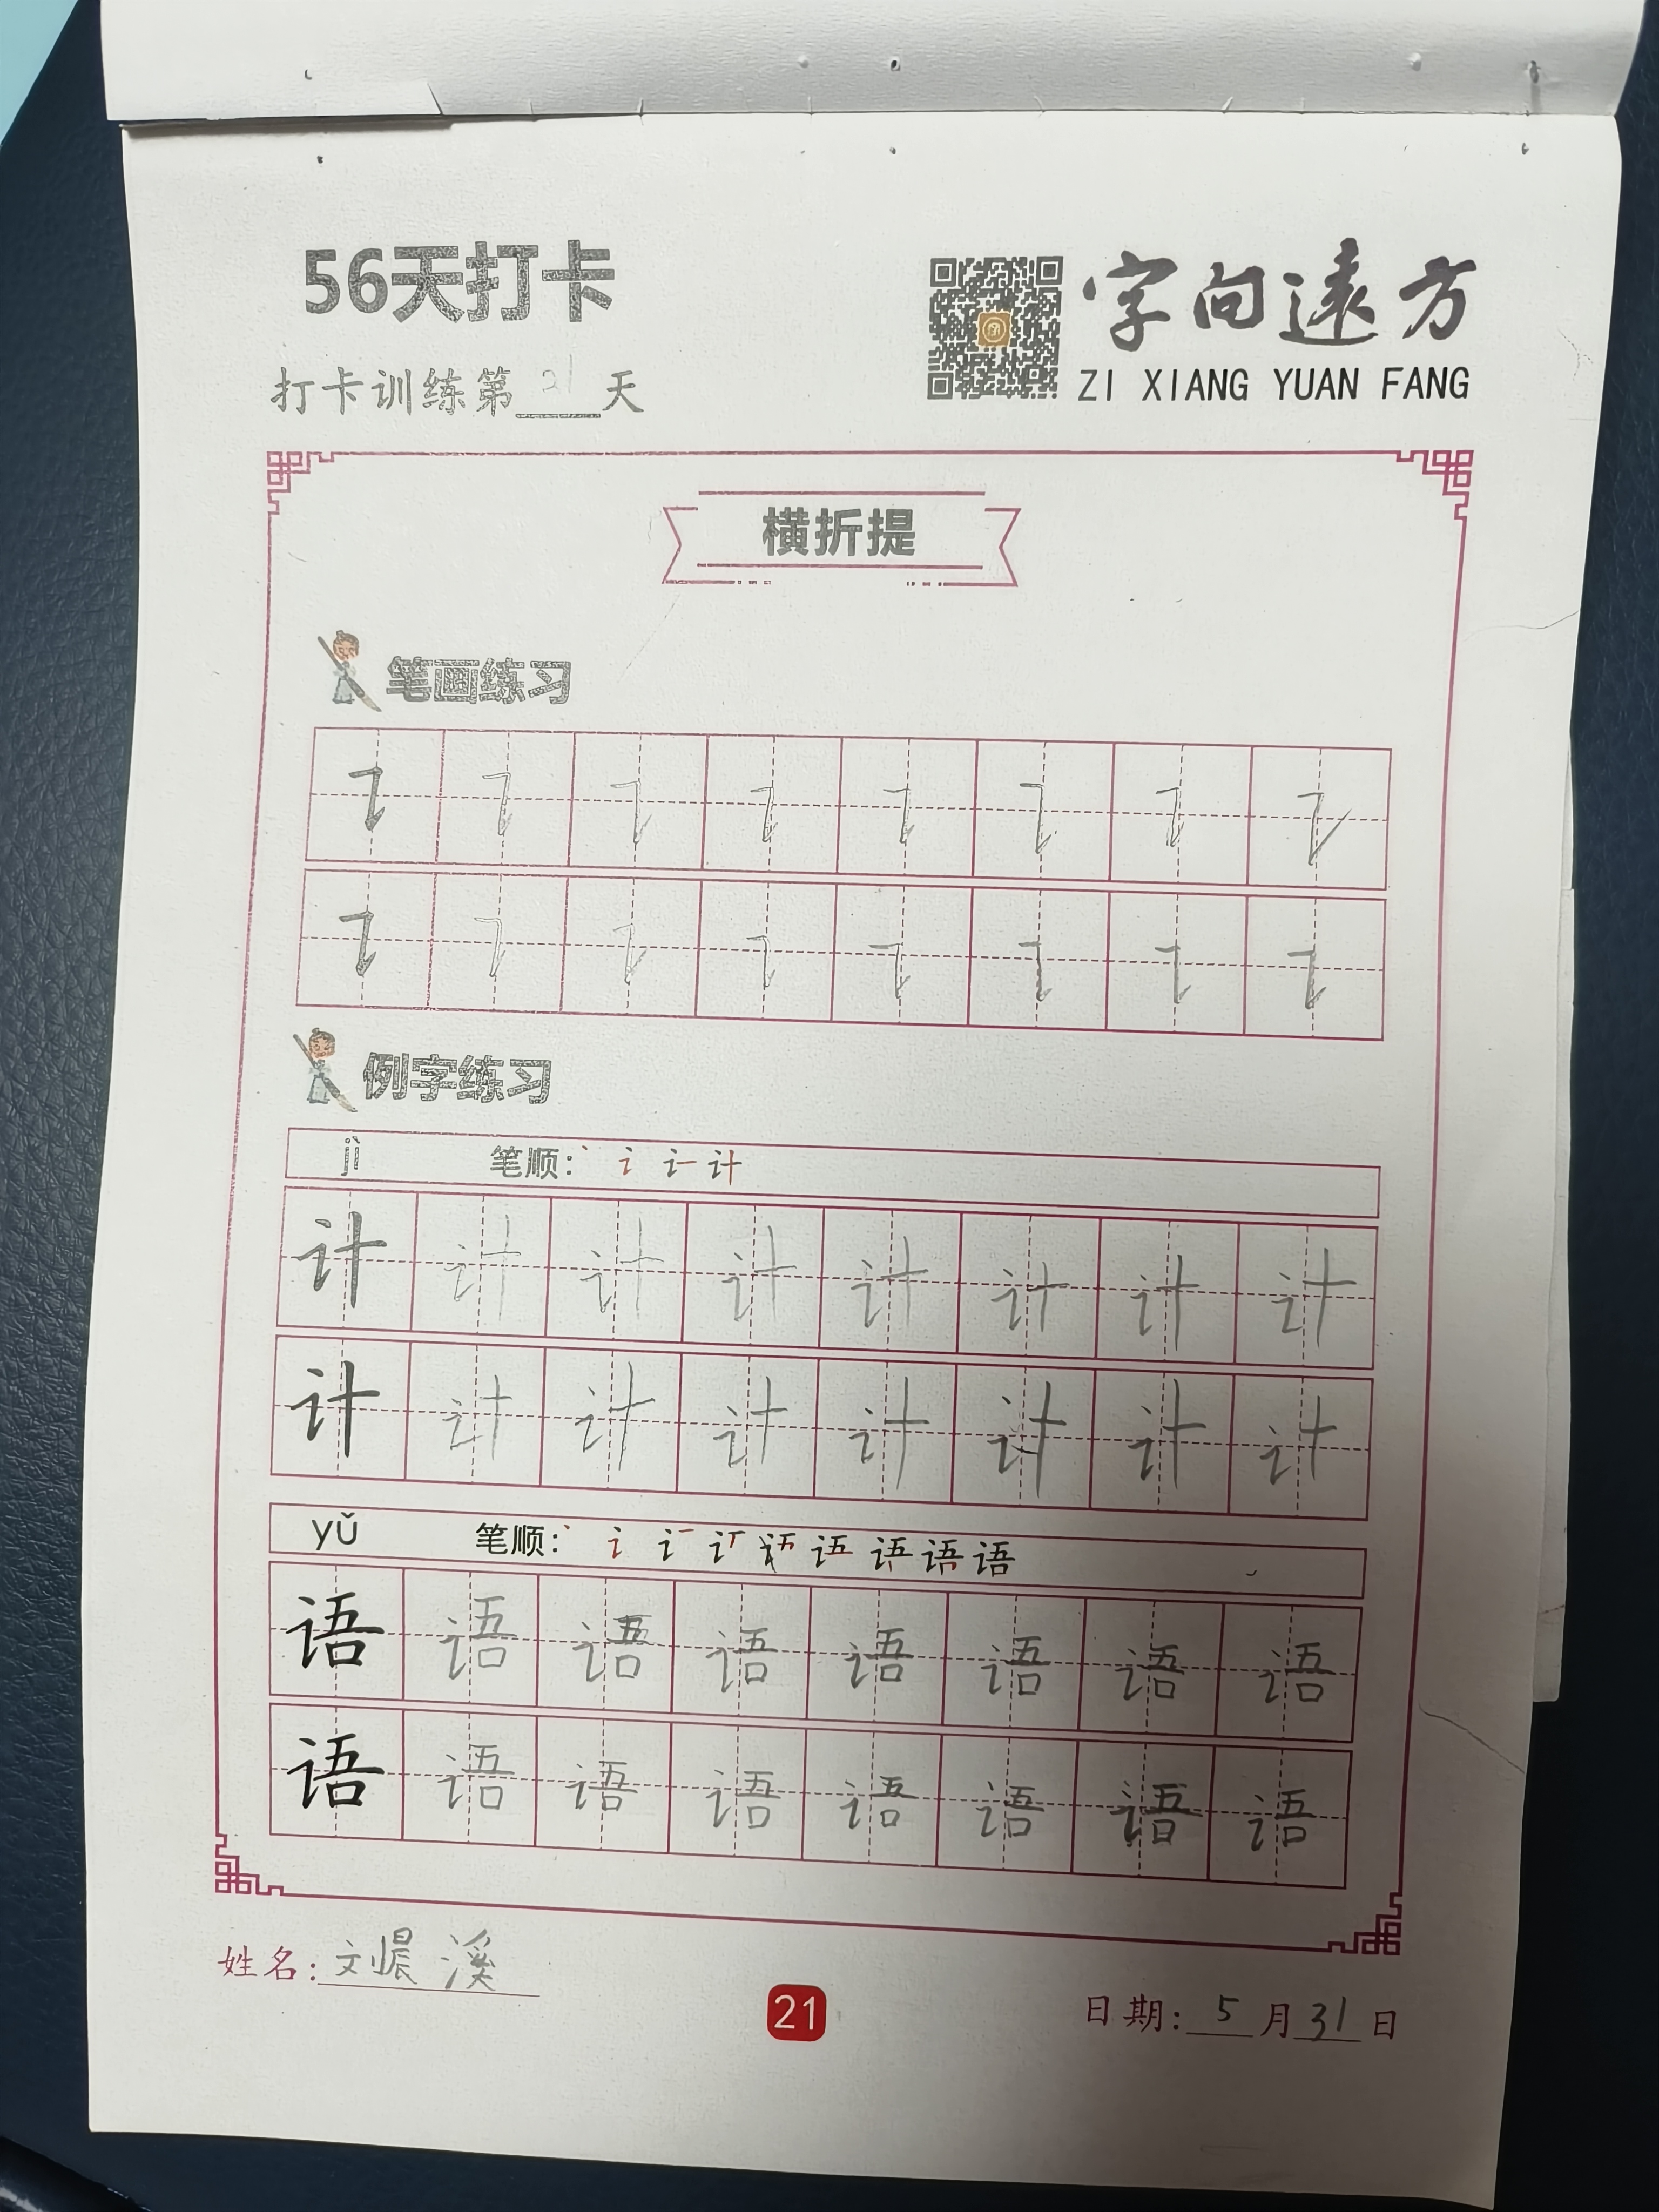 56天打卡
字向遠方
打卡训练第21天
ZI XIANG YUAN FANG
横折提
笔画练习
例字练习
jì 笔顺:
计 计 计 计 计 计 计 计
计 计 计 计 计 计 计 计
yǔ 笔顺:
语 语 语 语 语 语 语 语
语 语 语 语 语 语 语 语
姓名:刘晨溪
21
日期:5月31日